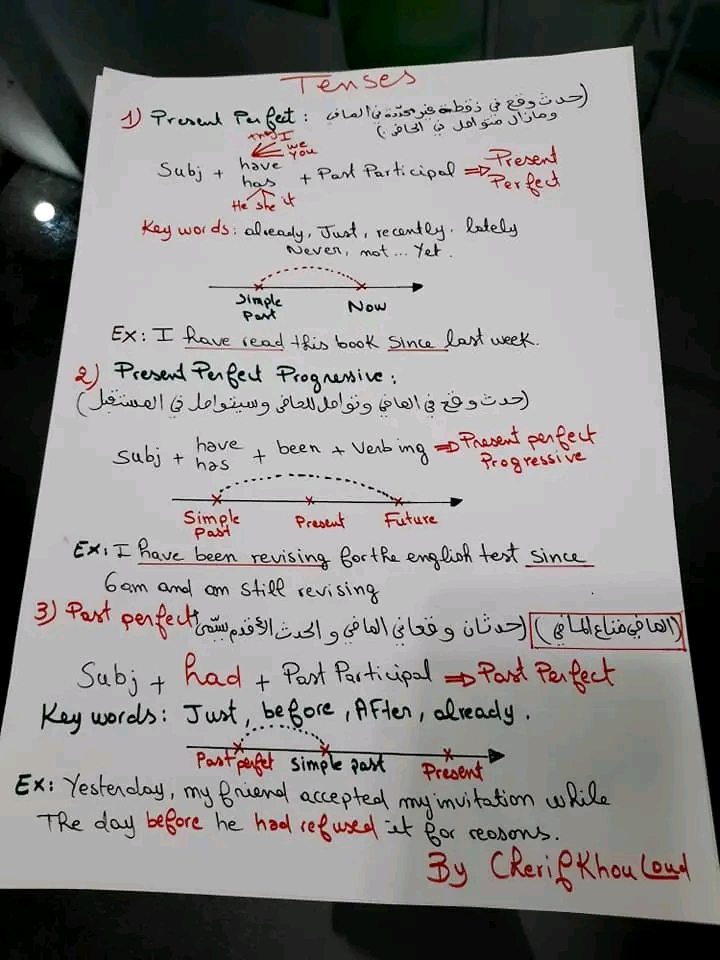 Tenses
1) Present Perfect: (حدث وقع في نقطة غير محدّدة في الماضي
ومازال متواصل في الحاضر)
They I
we
you
Subj + have + Past Participal ⇒ Present
has Perfect
He she it
Key words: already, Just, recently. lately
Never, not... Yet.
Simple Now
Past
Ex: I have read this book since last week.
2) Present Perfect Progressive:
(حدث وقع في الماضي وتواصل للحاضر وسيتواصل في المستقبل)
Subj + have + been + Verb ing ⇒ Present perfect
has Progressive
Simple Present Future
Past
Ex: I have been revising for the english test since
6am and am still revising
3) Past perfect (حدثان وقعا في الماضي و الحدث الأقدم يسمّى (الماضي متاع الماضي)
Subj + had + Past Participal ⇒ Past Perfect
Key words: Just, before, After, already.
Past perfet simple past Present
Ex: Yesterday, my friend accepted my invitation while
The day before he had refused it for reasons.
By Cherif Khouloud